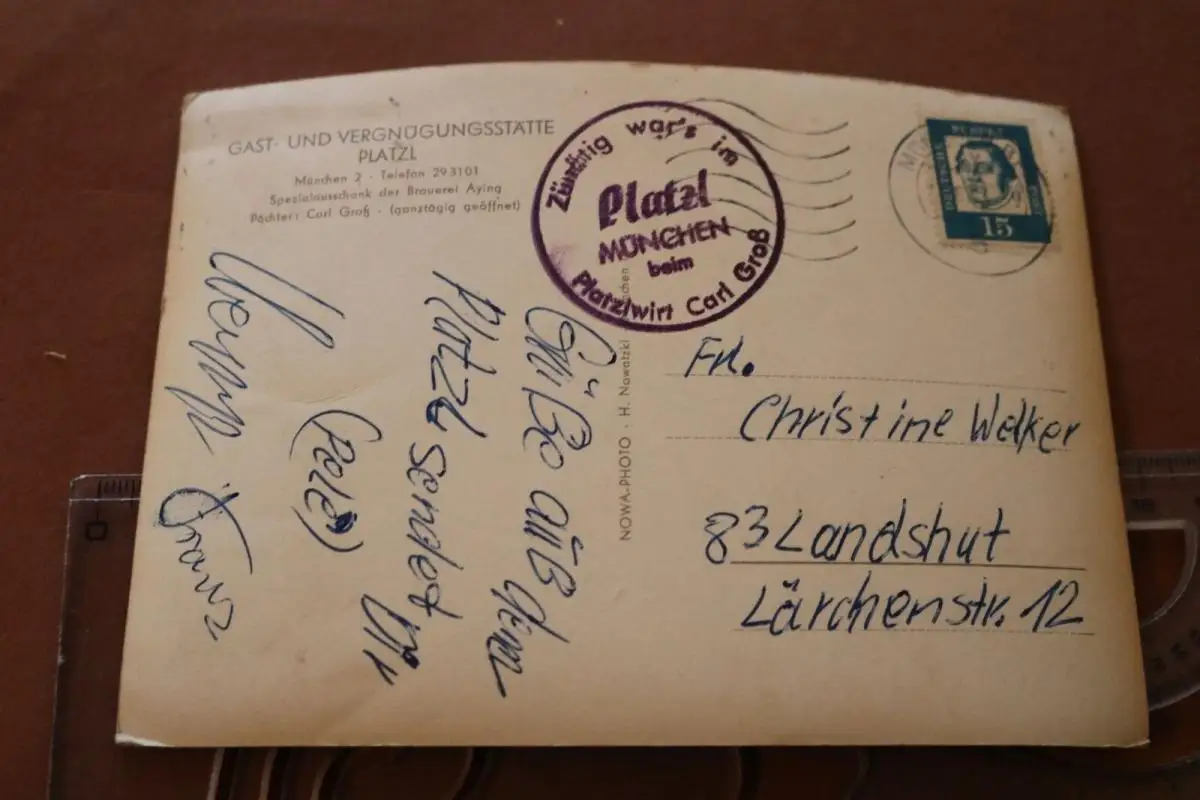 GAST- UND VERGNÜGUNGSSTÄTTE
PLATZL
München 2 - Telefon 293101
Spezialausschank der Brauerei Aying
Pächter: Carl Groß - (ganztägig geöffnet)
Zünftig war's im
Platzl
MÜNCHEN
beim
Platzlwirt Carl Groß
DEUTSCHE
15
NOWA-PHOTO · H. Nowatzki
Grüße aus dem
Platzl sendet
Franz
Frl.
Christine Welker
83 Landshut
Lärchenstr. 12